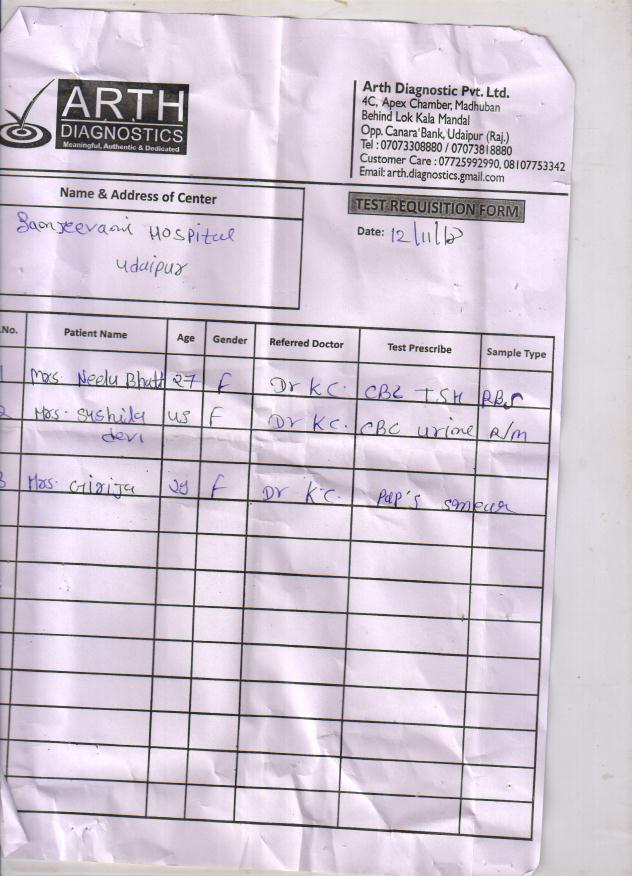 ARTH
DIAGNOSTICS
Meaningful, Authentic & Dedicated
Arth Diagnostic Pvt. Ltd.
4C, Apex Chamber, Madhuban
Behind Lok Kala Mandal
Opp. Canara Bank, Udaipur (Raj.)
Tel : 07073308880 / 07073818880
Customer Care : 07725992990, 08107753342
Email: arth.diagnostics.gmail.com
Name & Address of Center
Sanjeevani Hospital
Udaipur
TEST REQUISITION FORM
Date: 12/11/
.No. Patient Name Age Gender Referred Doctor Test Prescribe Sample Type
1 Mrs. Neelu Bhatt 27 F Dr KC. CBC TSH RBS
2 Mrs. Sushila F Dr KC. CBC urine R/m
devi
3 Mrs. Girija 29 F Dr KC. Pap's smear